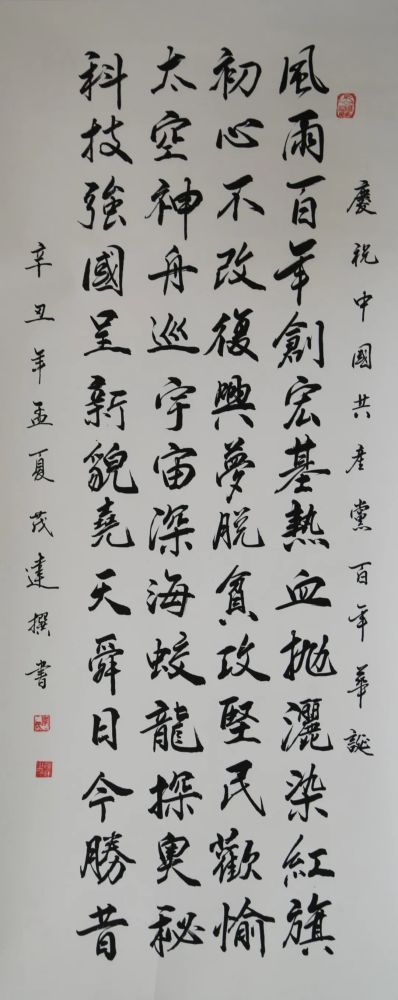 慶祝中國共産黨百年華誕
風雨百年創宏基熱血拋灑染紅旗
初心不改復興夢脱貧攻堅民歡愉
太空神舟巡宇宙深海蛟龍探奥秘
科技強國呈新貌堯天舜日今勝昔
辛丑年孟夏茂達撰書